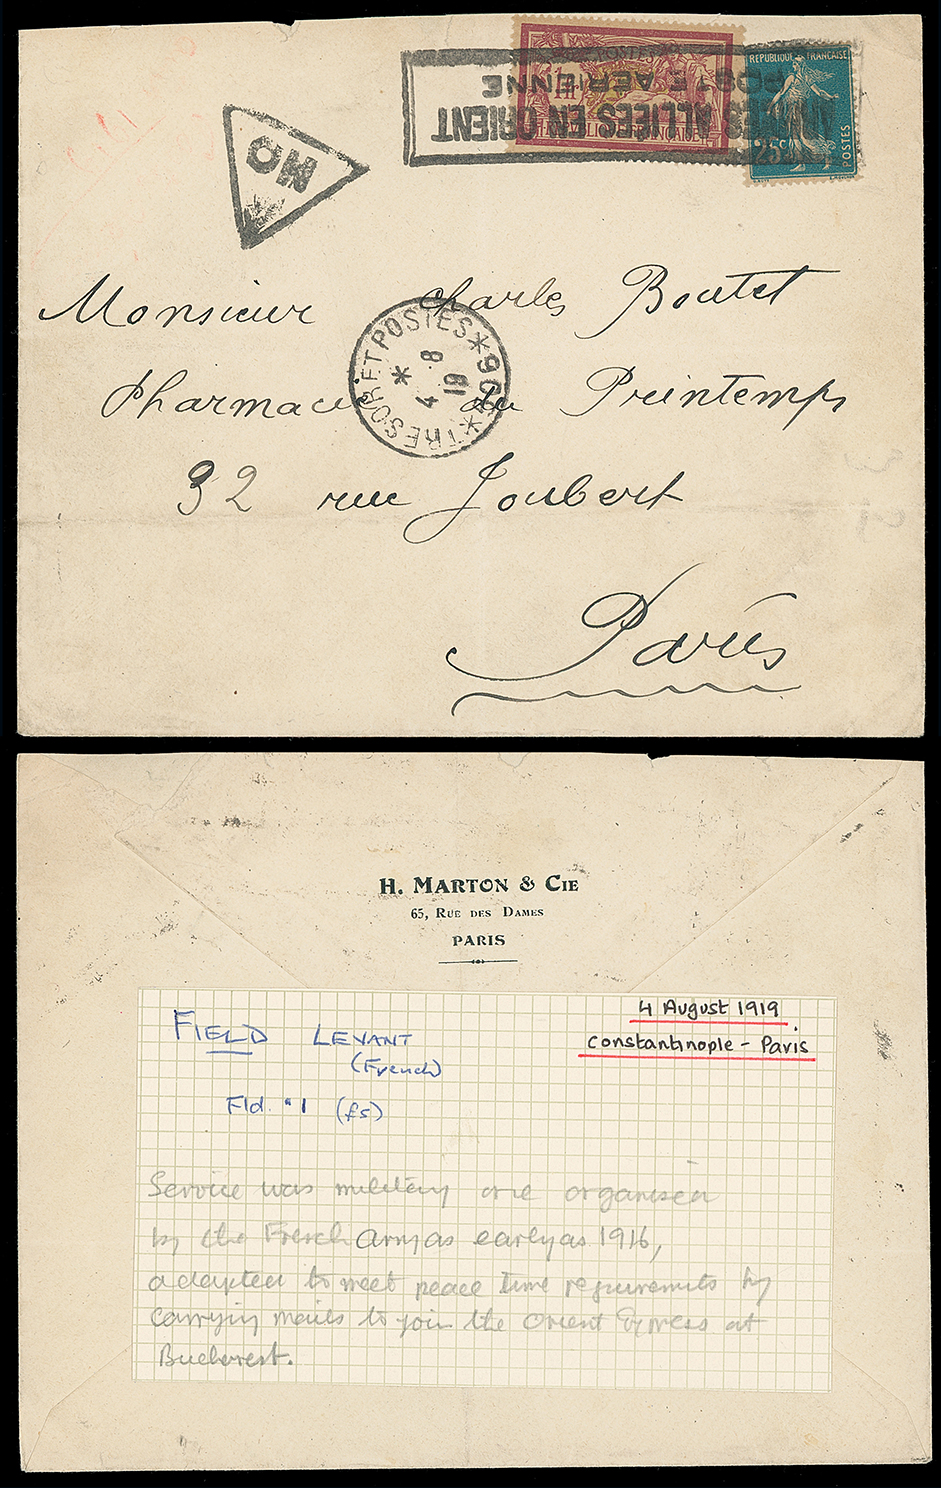 POSTE AERIENNE
ALLIÉES EN ORIENT
POSTES
1f
REPUBLIQUE FRANÇAISE
REPUBLIQUE FRANÇAISE
25c
POSTES
NO
Monsieur Charles Boutet
TRESOR ET POSTES * 506 *
* 4 8 19
Pharmacie du Printemps
32 rue Joubert
Paris
H. MARTON & CIE
65, RUE DES DAMES
PARIS
4 August 1919
Constantinople - Paris
FIELD LEVANT
(French)
Fld. "1 (£5)
Service was military one organised
by the French Army as early as 1916,
adapted to meet peace time requirements by
carrying mails to join the Orient Express at
Bucharest.